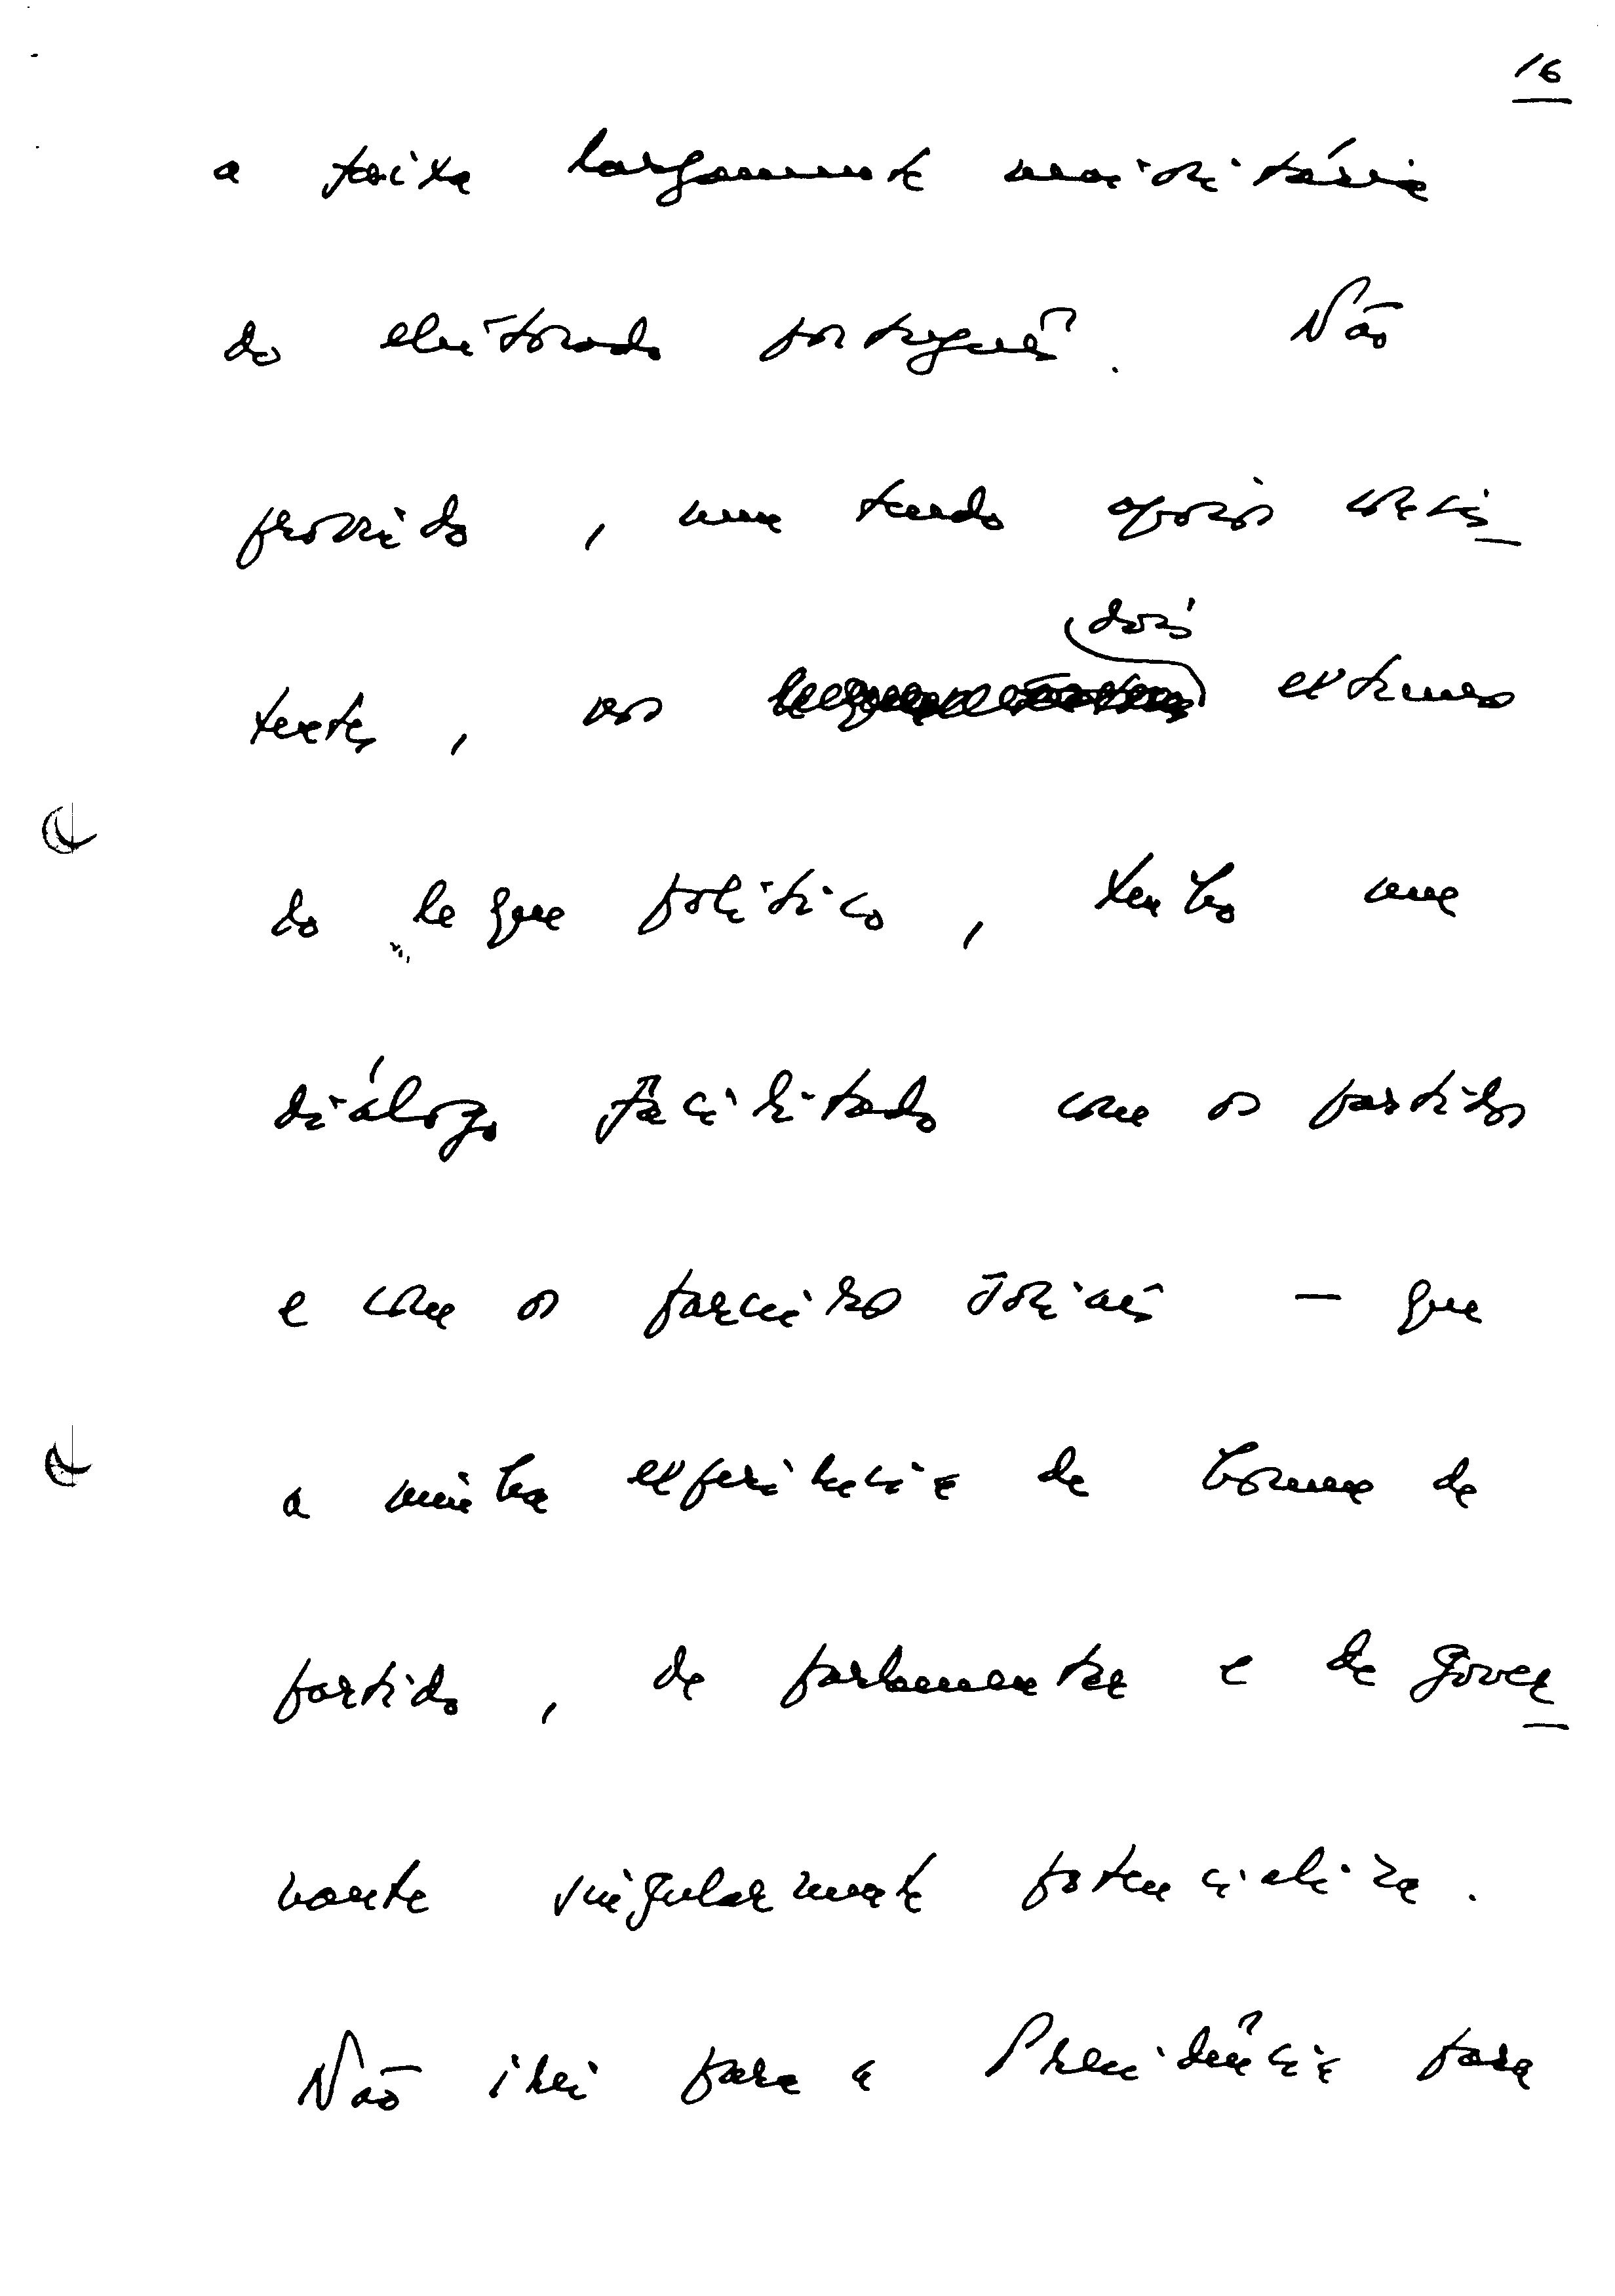 16
a faixa largamente maioritária
do eleitorado português. Não
provindo, nem tendo apoios consis-
tentes, nos dois extremos
do leque político, tenho um
diálogo facilitado com os partidos
e com os parceiros sociais — que
a minha experiência de homem de
partido, de parlamentar e de gover-
nante singularmente potencializa.
Não irei para a Presidência para